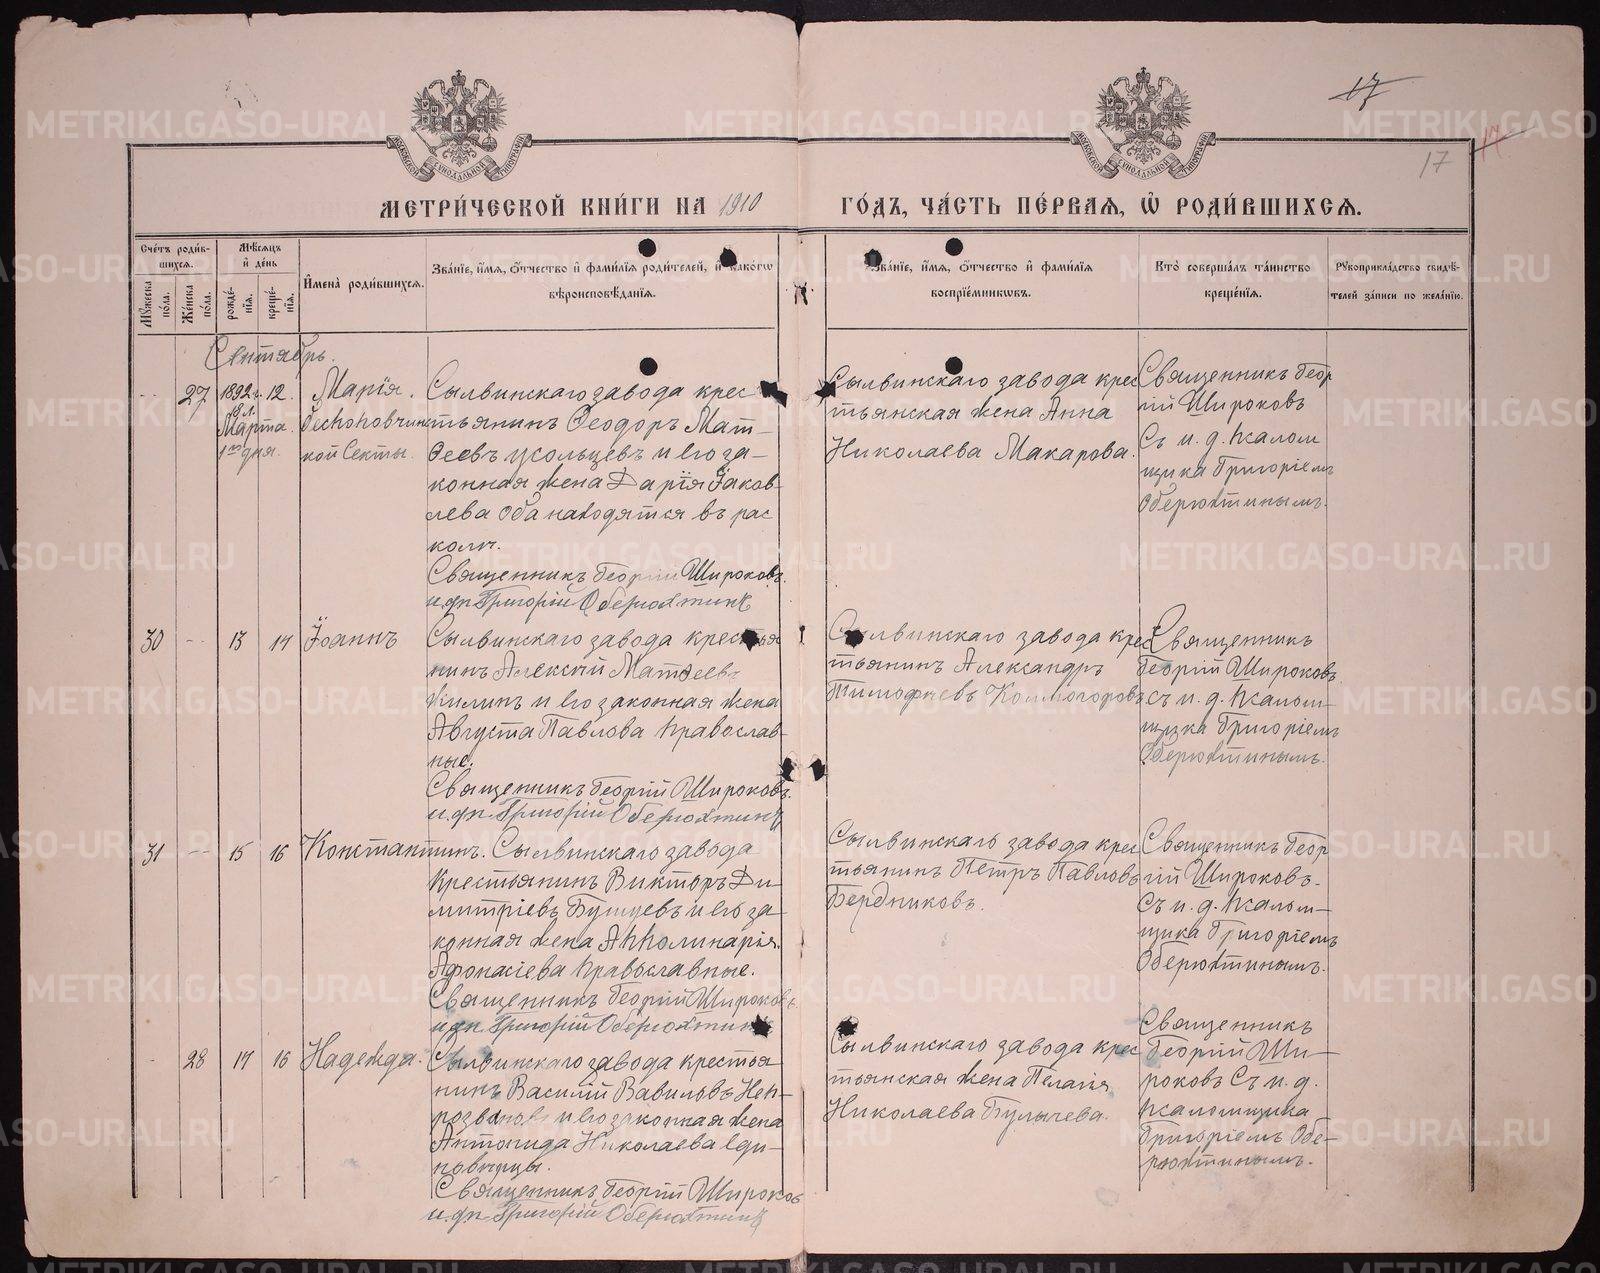 17
17
17
МЕТРИ́ЧЕСКОЙ КНИ́ГИ НА 1910 ГО́ДЪ, ЧА́СТЬ ПЕ́РВАЯ, Ѡ РОДИ́ВШИХСѦ.
Сче́тъ роди́вшихсѧ.
Мѣ́сѧцъ и҆ де́нь
Мꙋ́жеска по́ла.
Же́нска по́ла.
рожде́нїѧ.
креще́нїѧ.
И҆мена̀ роди́вшихсѧ.
Зва́нїе, и҆́мѧ, ѻ҆́тчество и҆ фами́лїѧ роди́телей, и҆ како́гѡ
вѣроисповѣ́данїѧ.
Зва́нїе, и҆́мѧ, ѻ҆́тчество и҆ фами́лїѧ
воспрїе́мникѡвъ.
Кто̀ соверша́лъ та́инство
креще́нїѧ.
Рꙋкоприкла́дство свидѣ́телей за́писи по жела́нїю.
Сентябрь.
27
1892 г. 12.
Марта
1го дня.
Марія.
Беспоповчинской Секты.
Сылвинскаго завода крес
тьянинъ Ѳеодоръ Мат-
ѳеевъ Усольцевъ и его за-
конная жена Дарія Яков-
лева оба находятся въ рас
колѣ.
Священникъ Георгій Широковъ.
и.дп. Григорій Оберюхтинъ
Сылвинскаго завода крес
тьянская жена Анна
Николаева Макарова.
Священникъ Геор
гій Широковъ
Съ и. д. псалом
щика Григоріемъ
Оберюхтинымъ.
30
13
14
Іоаннъ
Сылвинскаго завода крестья
нинъ Алексій Матѳеевъ
Килинъ и его законная жена
Августа Павлова православ-
ные.
Священникъ Георгій Широковъ.
и.дп. Григорій Оберюхтинъ
Сылвинскаго завода крес
тьянинъ Александръ
Тимофѣевъ Колмогоровъ
Священникъ
Георгій Широковъ
съ и. д. псалом-
щика Григоріемъ
Оберюхтинымъ.
31
15
16
Константинъ.
Сылвинскаго завода
крестьянинъ Викторъ Ди-
митріевъ Бушуевъ и его за-
конная жена Апполинарія
Афонасіева православные.
Священникъ Георгій Широковъ.
и.дп. Григорій Оберюхтинъ
Сылвинскаго завода крес
тьянинъ Петръ Павловъ
Бердниковъ.
Священникъ Геор
гій Широковъ.
Съ и. д. псалом-
щика Григоріемъ
Оберюхтинымъ.
28
16
Надежда.
Сылвинскаго завода крестья
нинъ Василій Вавиловъ Неп-
розвановъ и его законная жена
Николаева еди-
новѣрцы.
Священникъ Георгій Широковъ
и.дп. Григорій Оберюхтинъ
Сылвинскаго завода крес
тьянская жена Пелагія
Николаева Булычева.
Священникъ
Георгій Ши-
роковъ Съ и. д.
псаломщика
Григоріемъ Обе-
рюхтинымъ.
METRIKI.GASO-URAL.RU